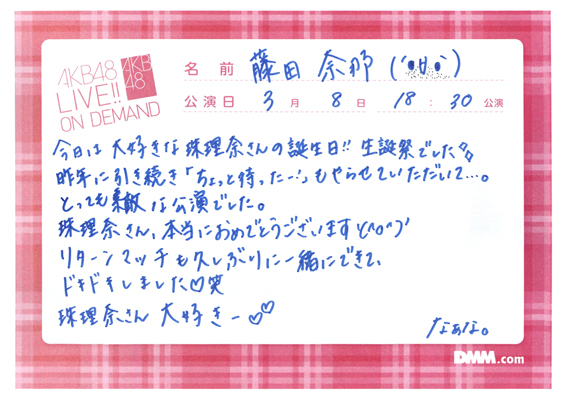 AKB48
LIVE!!
ON DEMAND
AKB
48
名前 藤田 奈那
公演日 3月 8日 18:30 公演
今日は大好きな珠理奈さんの誕生日!! 生誕祭でした
昨年に引き続き「ちょっと待ったー!」もやらせていただいて…。
とっても素敵な公演でした。
珠理奈さん、本当におめでとうございます\(^o^)/
リターンマッチも久しぶりに一緒にできて、
ドキドキしました♡笑
珠理奈さん 大好きー♡♡
なぁな。
DMM.com